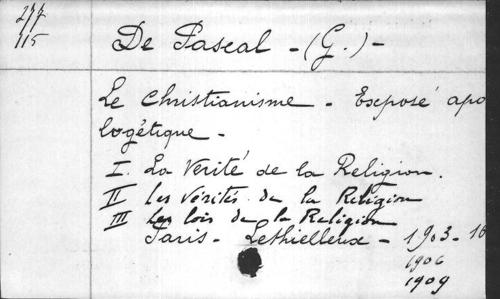 277
115
De Pascal - (G.) -
Le Christianisme - Exposé apo
logétique -
I. La Verité de la Religion.
II Les Vérités de la Religion
III Les lois de la Religion
Paris - Lethielleux - 1903 - 16
1906
1909